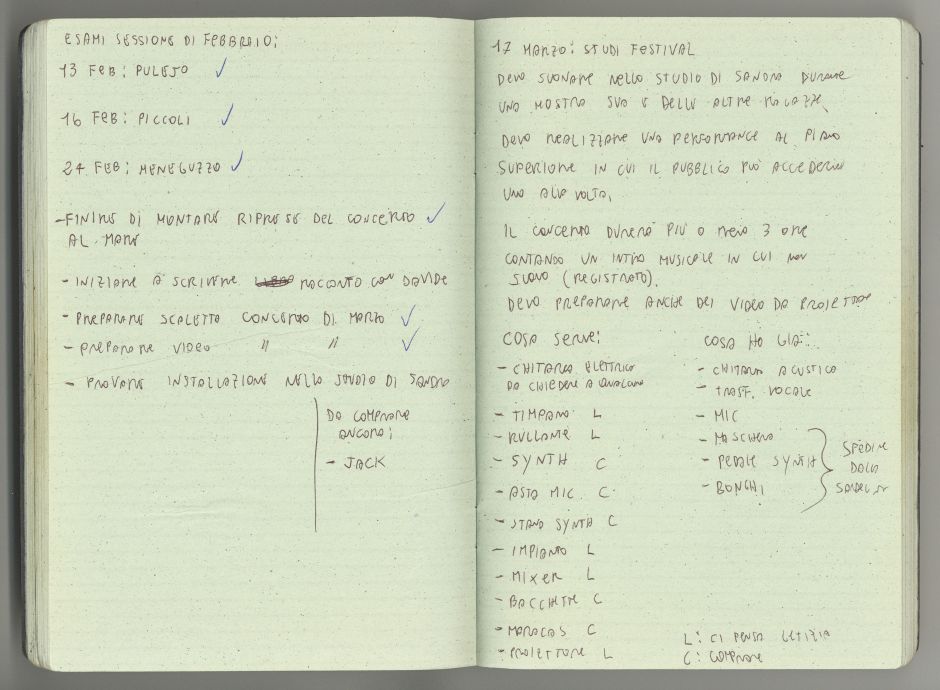 ESAMI SESSIONE DI FEBBRAIO:
13 FEB: PULEJO ✓
16 FEB: PICCOLI ✓
24 FEB: MENEGUZZO ✓
- FINIRE DI MONTARE RIPRESE DEL CONCERTO ✓
AL MARE
- INIZIARE A SCRIVERE RACCONTO CON DAVIDE
- PREPARARE SCALETTA CONCERTO DI MARZO ✓
- PREPARARE VIDEO " " ✓
- PROVARE INSTALLAZIONE NELLO STUDIO DI SANDRA
DA COMPRARE
ANCORA:
- JACK
17 MARZO: STUDI FESTIVAL
DEVO SUONARE NELLO STUDIO DI SANDRA DURANTE
UNA MOSTRA SUA E DELLE ALTRE RAGAZZE.
DEVO REALIZZARE UNA PERFORMANCE AL PIANO
SUPERIORE IN CUI IL PUBBLICO PUÒ ACCEDERVI
UNO ALLA VOLTA.
IL CONCERTO DURERÀ PIÙ O MENO 3 ORE
CONTANDO UN INTRO MUSICALE IN CUI NON
SUONO (REGISTRATO).
DEVO PREPARARE ANCHE DEI VIDEO DA PROIETTARE
COSA SERVE:
- CHITARRA ELETTRICA
DA CHIEDERE A QUALCUNO
- TIMPANO L
- RULLANTE L
- SYNTH C
- ASTA MIC. C
- STAND SYNTH C
- IMPIANTO L
- MIXER L
- BACCHETTE C
- MARACAS C
- PROIETTORE L
COSA HO GIÀ:
- CHITARRA ACUSTICA
- TRASF. VOCALE
- MIC
- MASCHERA
- PEDALE SYNTH
- BONGHI
SPEDIRE
DALLA
L: CI PENSA LETIZIA
C: COMPRARE